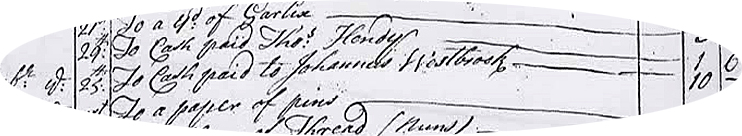 21st To a yd. of Garlix
24th To Cash paid Thos. Hendy 1 0
25th To Cash paid to Johannes Westbrook 10
To a paper of pins
Thread (Nuns)